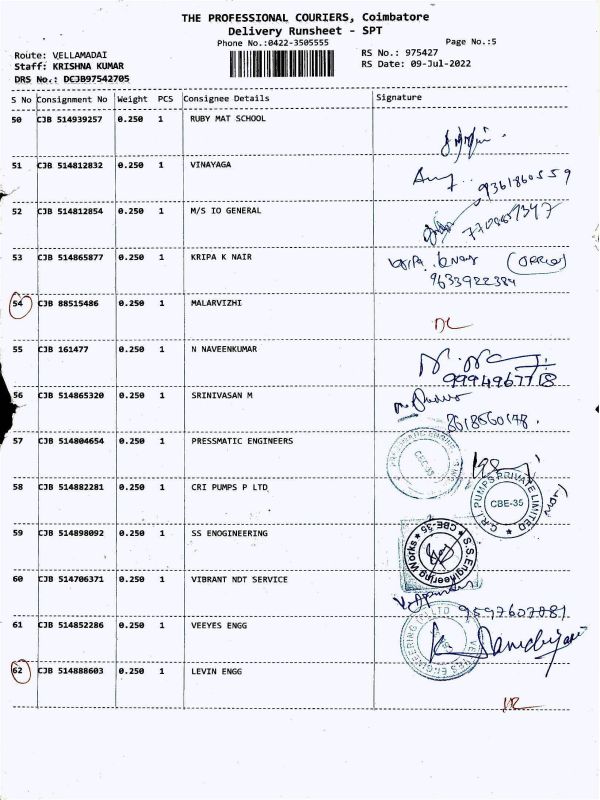 THE PROFESSIONAL COURIERS, Coimbatore
Delivery Runsheet - SPT
Phone No.:0422-3505555
Page No.:5
Route: VELLAMADAI
RS No.: 975427
Staff: KRISHNA KUMAR
RS Date: 09-Jul-2022
DRS No.: DCJB97542705
S No Consignment No Weight PCS Consignee Details Signature
50 CJB 514939257 0.250 1 RUBY MAT SCHOOL
51 CJB 514812832 0.250 1 VINAYAGA
9361860559
52 CJB 514812854 0.250 1 M/S IO GENERAL
53 CJB 514865877 0.250 1 KRIPA K NAIR
9633922384
54 CJB 88515486 0.250 1 MALARVIZHI
55 CJB 161477 0.250 1 N NAVEENKUMAR
9994967718
56 CJB 514865320 0.250 1 SRINIVASAN M
8618560178.
57 CJB 514804654 0.250 1 PRESSMATIC ENGINEERS
58 CJB 514882281 0.250 1 CRI PUMPS P LTD
C.R.I. PUMPS PRIVATE LIMITED
CBE-35
59 CJB 514898092 0.250 1 SS ENOGINEERING
S.S.Engineering Works
CBE-35
60 CJB 514706371 0.250 1 VIBRANT NDT SERVICE
9597607081
61 CJB 514852286 0.250 1 VEEYES ENGG
62 CJB 514888603 0.250 1 LEVIN ENGG